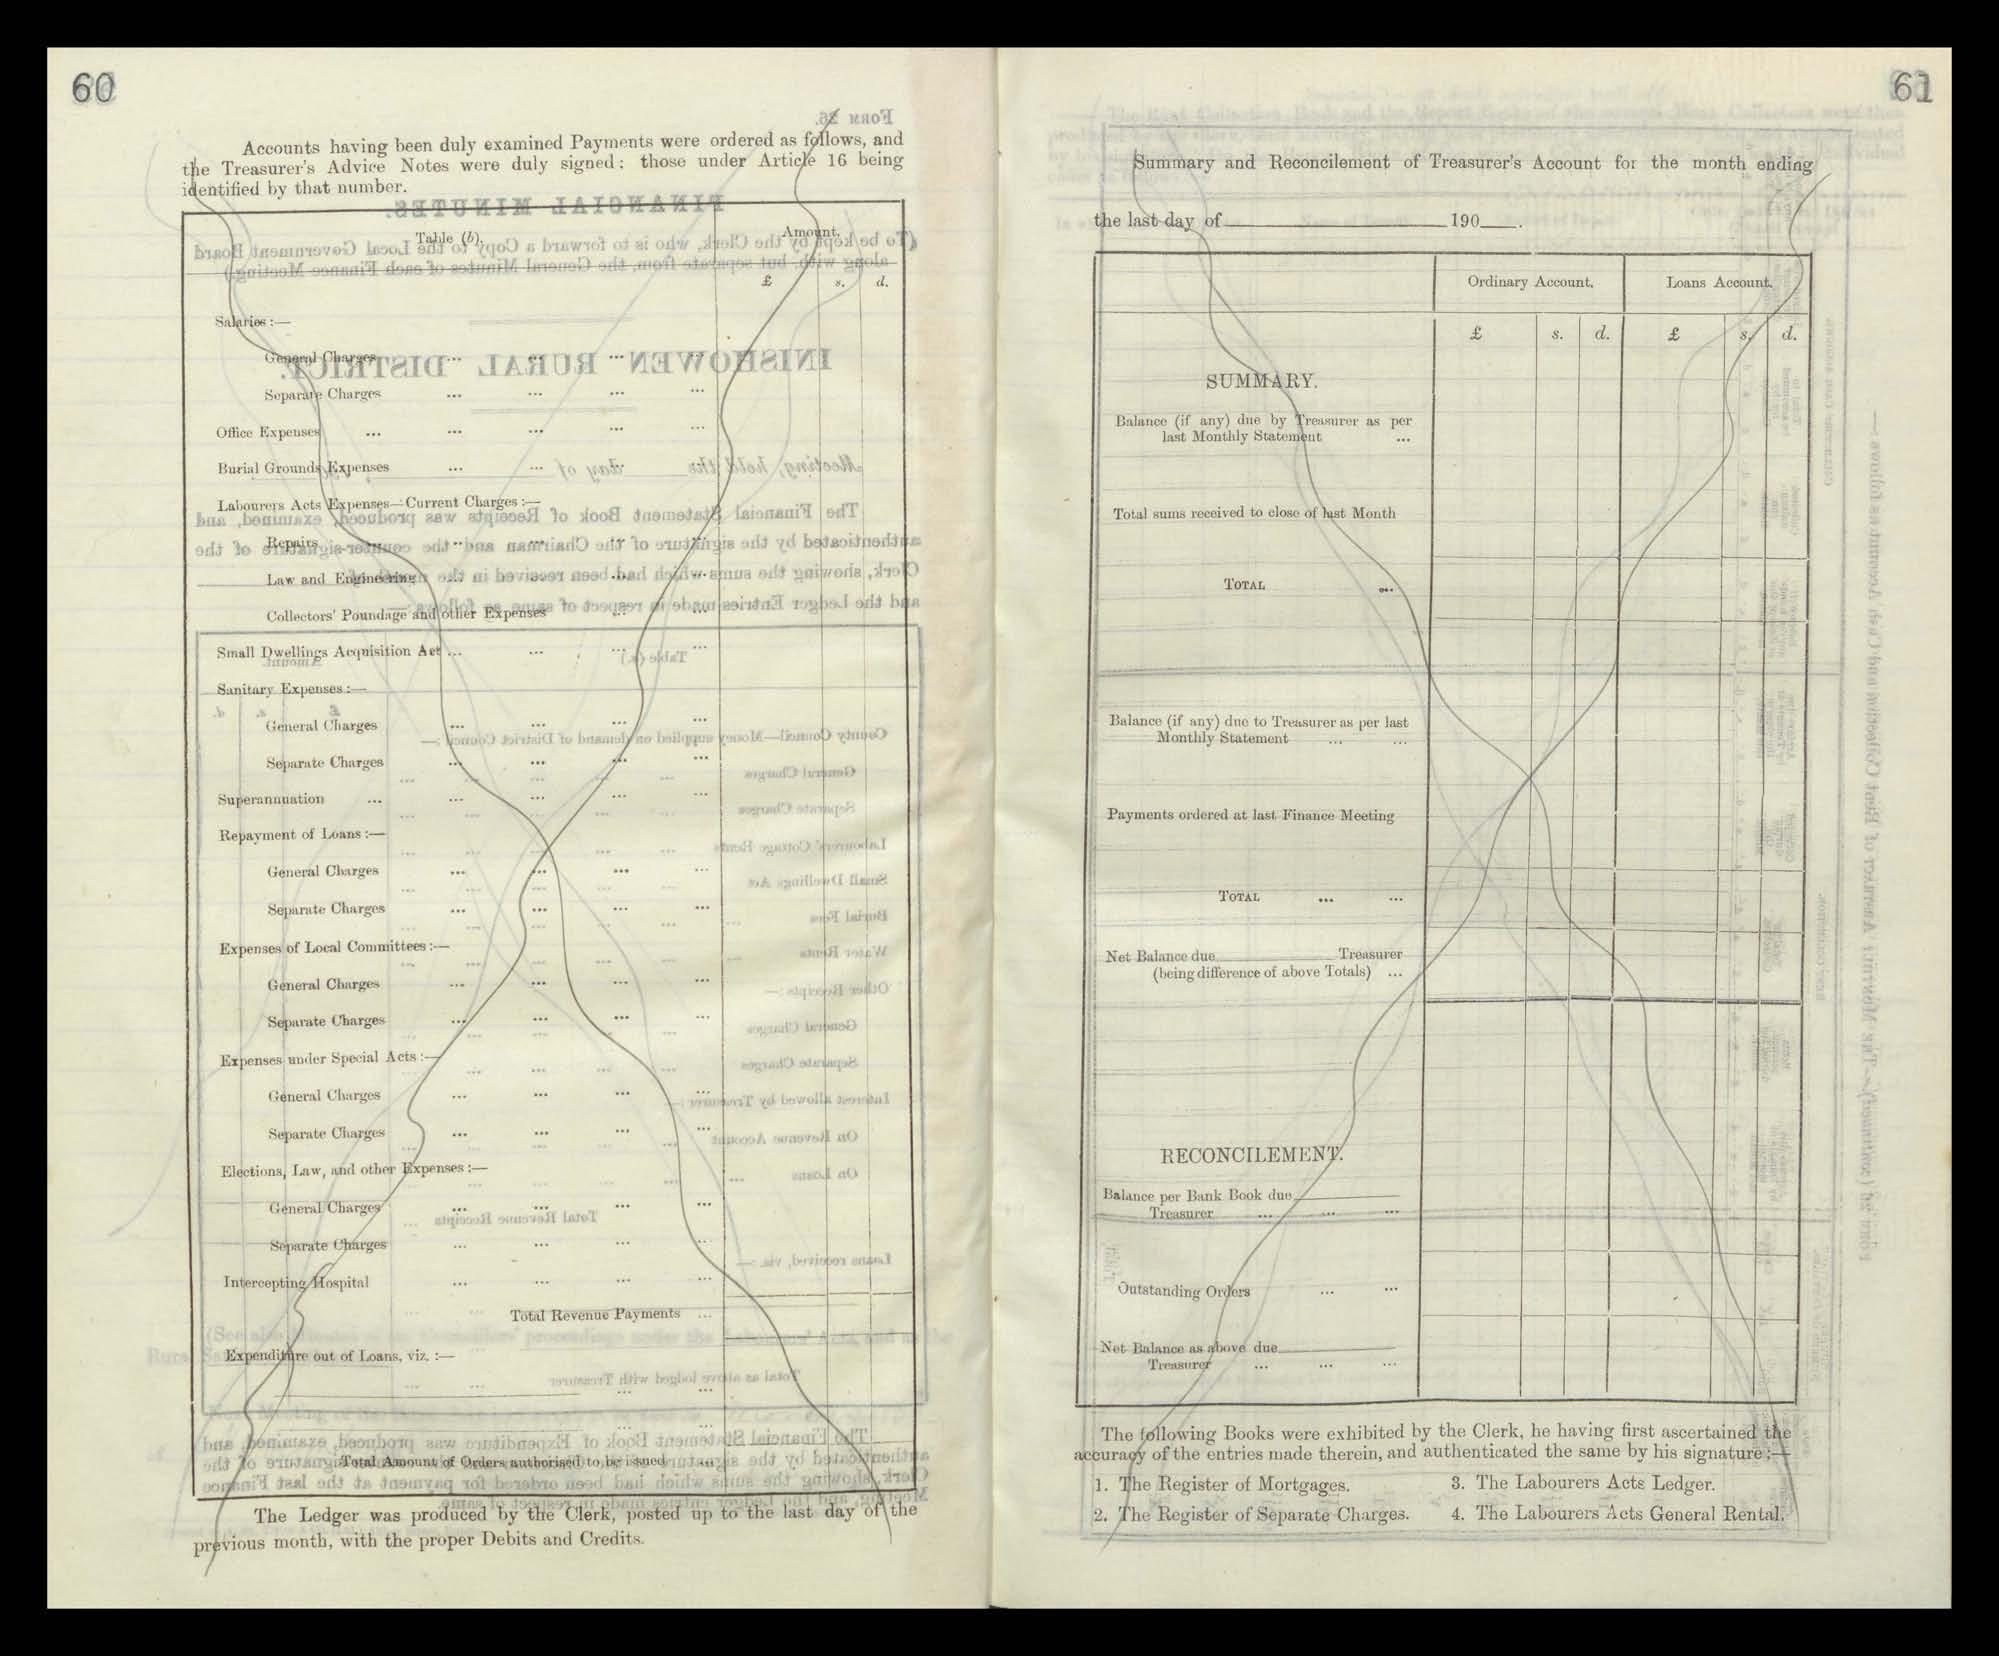 60
Accounts having been duly examined Payments were ordered as follows, and
the Treasurer's Advice Notes were duly signed: those under Article 16 being
identified by that number.
Table (b). Amount.
£ s. d.
Salaries :—
General Charges ... ... ... ...
Separate Charges ... ... ... ...
Office Expenses ... ... ... ... ...
Burial Grounds Expenses ... ... ... ...
Labourers Acts Expenses—Current Charges :—
Repairs ... ... ... ... ...
Law and Engineering ... ... ... ...
Collectors' Poundage and other Expenses ... ...
Small Dwellings Acquisition Act ... ... ... ...
Sanitary Expenses :—
General Charges ... ... ... ...
Separate Charges ... ... ... ...
Superannuation ... ... ... ... ...
Repayment of Loans :—
General Charges ... ... ... ...
Separate Charges ... ... ... ...
Expenses of Local Committees :—
General Charges ... ... ... ...
Separate Charges ... ... ... ...
Expenses under Special Acts :—
General Charges ... ... ... ...
Separate Charges ... ... ... ...
Elections, Law, and other Expenses :—
General Charges ... ... ... ...
Separate Charges ... ... ... ...
Intercepting Hospital ... ... ... ...
Total Revenue Payments ...
Expenditure out of Loans, viz. :—
Total Amount of Orders authorised to be issued ...
The Ledger was produced by the Clerk, posted up to the last day of the
previous month, with the proper Debits and Credits.
61
Summary and Reconcilement of Treasurer's Account for the month ending
the last day of 190 .
Ordinary Account. Loans Account.
£ s. d. £ s. d.
SUMMARY.
Balance (if any) due by Treasurer as per
last Monthly Statement ...
Total sums received to close of last Month
TOTAL ...
Balance (if any) due to Treasurer as per last
Monthly Statement ... ...
Payments ordered at last Finance Meeting
TOTAL ... ...
Net Balance due Treasurer
(being difference of above Totals) ...
RECONCILEMENT.
Balance per Bank Book due
Treasurer ... ... ...
Outstanding Orders ... ...
Net Balance as above due
Treasurer ... ... ...
The following Books were exhibited by the Clerk, he having first ascertained the
accuracy of the entries made therein, and authenticated the same by his signature :—
1. The Register of Mortgages. 3. The Labourers Acts Ledger.
2. The Register of Separate Charges. 4. The Labourers Acts General Rental.